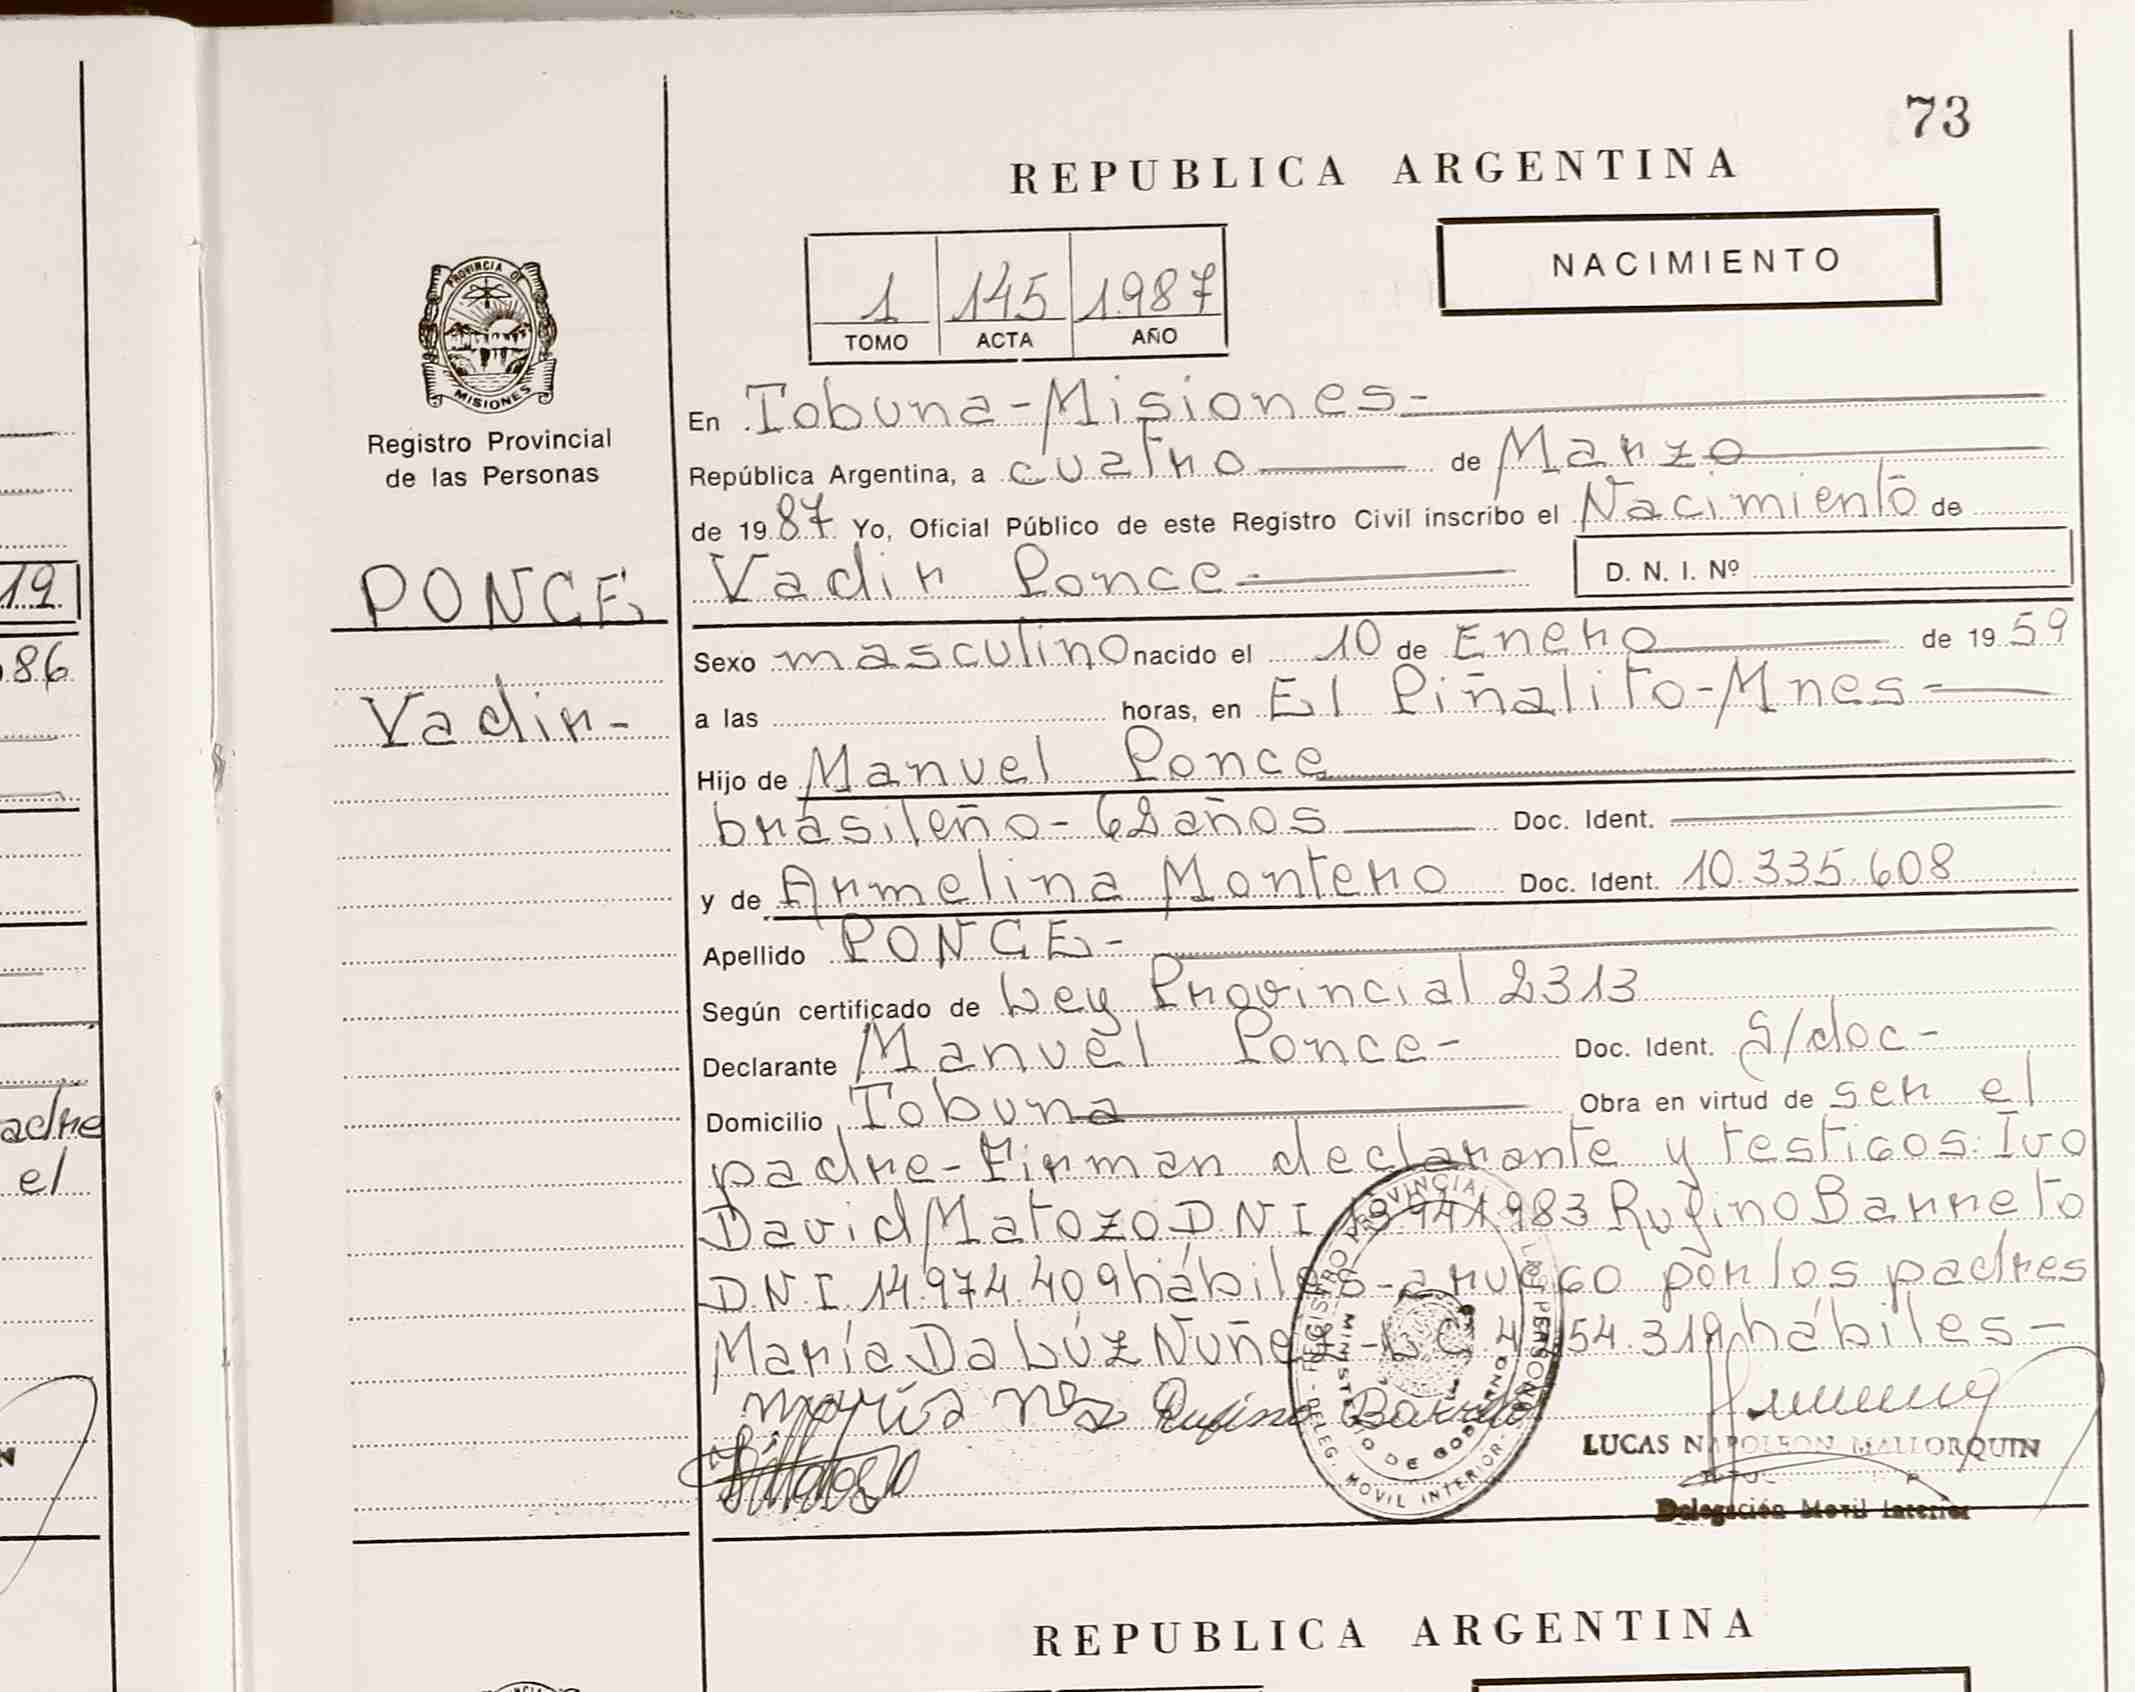 73
REPUBLICA ARGENTINA
1 145 1987
TOMO ACTA AÑO
NACIMIENTO
PROVINCIA DE
MISIONES
Registro Provincial
de las Personas
PONCE
Vadir-
En Tobuna-Misiones-
República Argentina, a cuatro de Marzo
de 1987 Yo, Oficial Público de este Registro Civil inscribo el Nacimiento de
Vadir Ponce- D. N. I. Nº
Sexo masculino nacido el 10 de Enero de 1959
a las horas, en El Piñalito-Mnes-
Hijo de Manuel Ponce
brasileño-68 años Doc. Ident.
y de Armelina Montero Doc. Ident. 10.335.608
Apellido PONCE-
Según certificado de Ley Provincial 2313
Declarante Manuel Ponce- Doc. Ident. S/doc-
Domicilio Tobuna Obra en virtud de ser el
padre-Firman declarante y testigos: Ivo
David Matozo D.N.I. 13.941.983 Rufino Barreto
D.N.I. 14.974.409 hábiles-a ruego por los padres
María Da Lúz Nuñez-L.C. 54.319 hábiles-
María Rufino Barreto
LUCAS NAPOLEON MALLORQUIN
Delegación Movil Interior
REGISTRO PROVINCIAL DE LAS PERSONAS
MINISTERIO DE GOBIERNO
DELEG. MOVIL INTERIOR
19
86
adre
el
N
REPUBLICA ARGENTINA